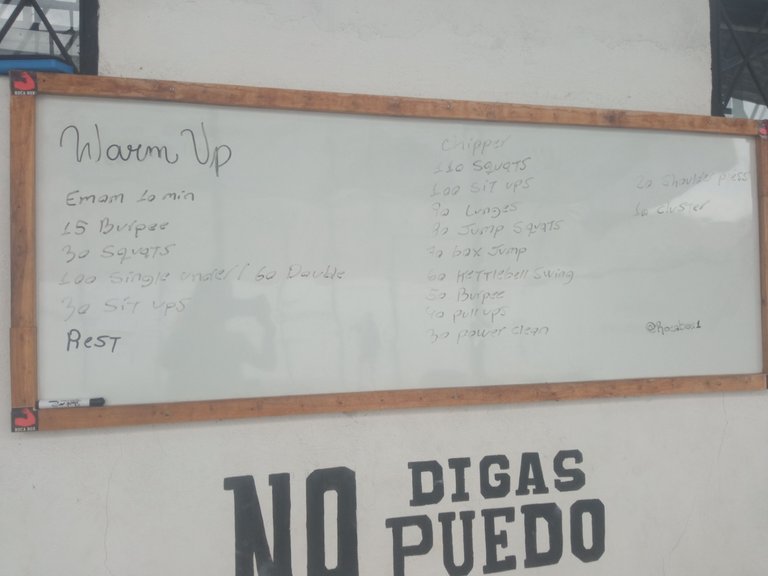 Warm Up
Emom 10 min
15 Burpee
30 Squats
100 Single under / 60 Double
30 Sit ups
Rest
Chipper
110 Squats
100 Sit ups
90 Lunges
Jump Squats
box Jump
60 Kettlebell Swing
50 Burpee
40 pull ups
30 power clean
20 Shoulder press
10 cluster
NO
DIGAS
PUEDO